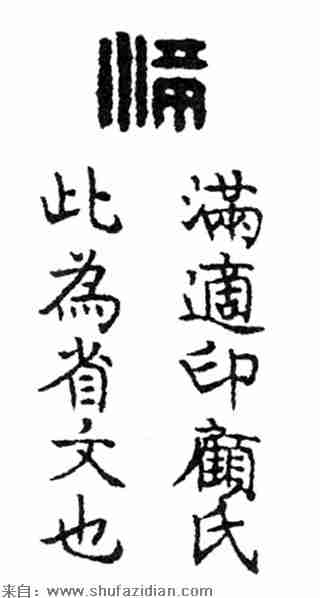 滿
滿適印顧氏
此為省文也
来自：www.shufazidian.com